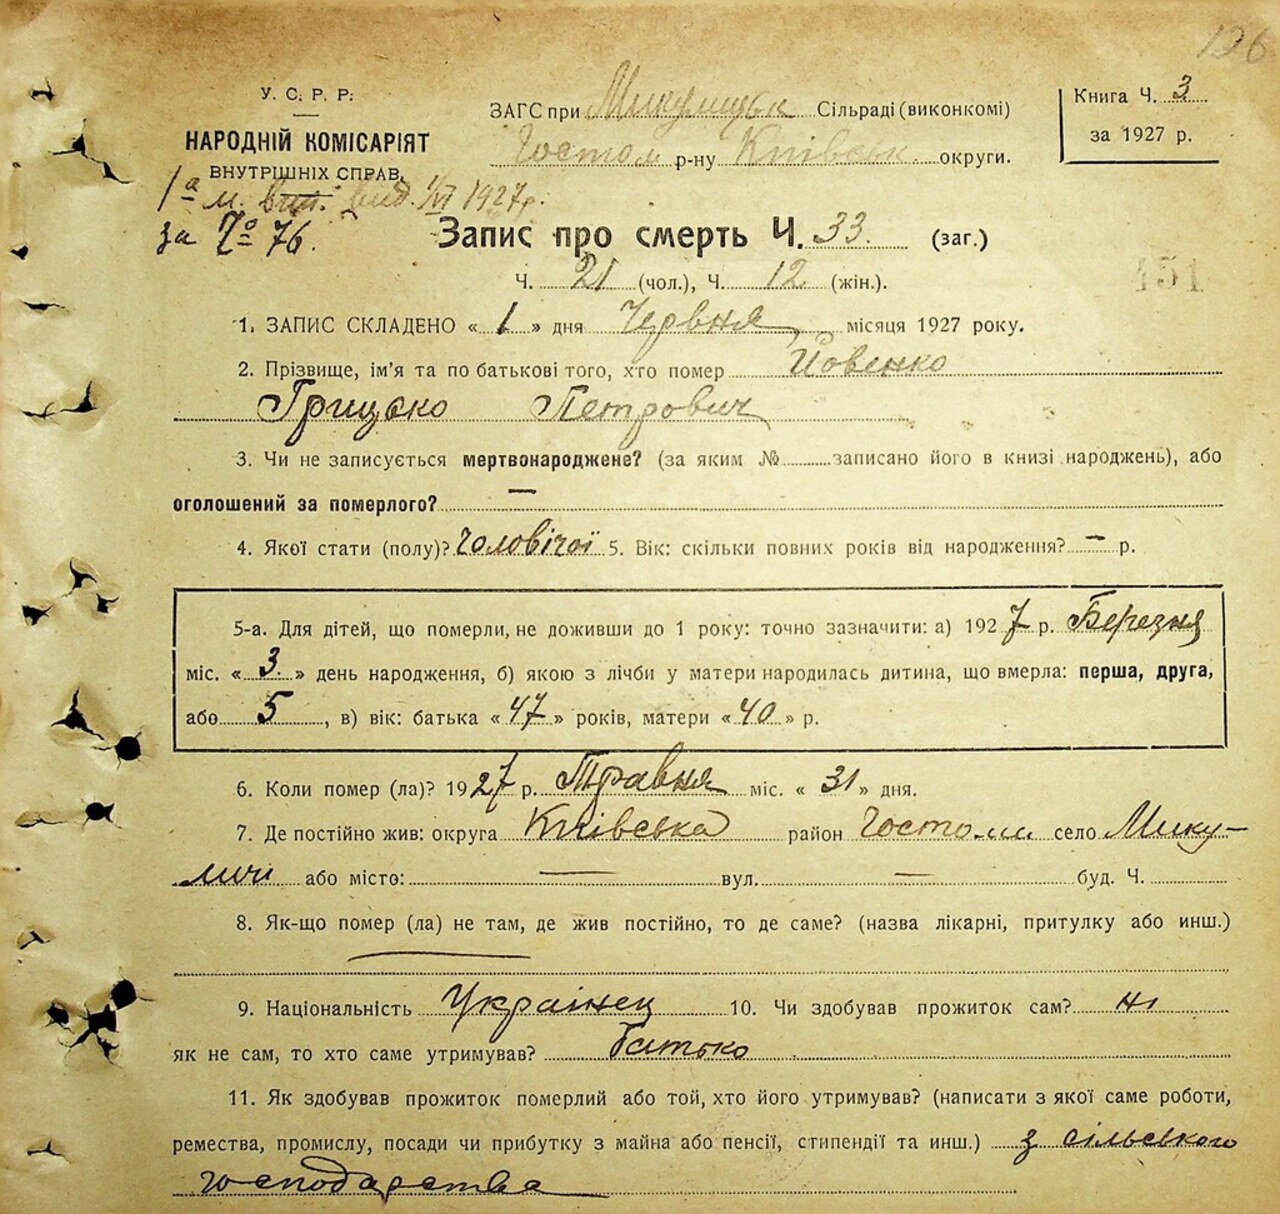 126
У. С. Р. Р.
НАРОДНІЙ КОМІСАРІЯТ
ВНУТРІШНІХ СПРАВ.
ЗАГС при Микулицьк Сільраді (виконкомі)
Гостом р-ну Київськ. округи.
Книга Ч. 3
за 1927 р.
1а м. вид. 1/VI 1927 р.
за № 76.
Запис про смерть Ч. 33. (заг.)
Ч. 21 (чол.), Ч. 12 (жін.).
151
1. ЗАПИС СКЛАДЕНО « 1 » дня Червня місяця 1927 року.
2. Прізвище, ім'я та по батькові того, хто помер Йовенко
Грицько Петрович
3. Чи не записується мертвонароджене? (за яким № записано його в книзі народжень), або
оголошений за померлого? —
4. Якої стати (полу)? Чоловічої 5. Вік: скільки повних років від народження? — р.
5-а. Для дітей, що померли, не доживши до 1 року: точно зазначити: а) 1927 р. Березня
міс. « 3. » день народження, б) якою з лічби у матери народилась дитина, що вмерла: перша, друга,
або 5, в) вік: батька « 47 » років, матери « 40 » р.
6. Коли помер (ла)? 1927 р. Травня міс. « 31 » дня.
7. Де постійно жив: округа Київська район Гостом село Мику-
личи або місто: — вул. — буд. Ч.
8. Як-що помер (ла) не там, де жив постійно, то де саме? (назва лікарні, притулку або инш.)
9. Національність Українец 10. Чи здобував прожиток сам? ні
як не сам, то хто саме утримував? батько
11. Як здобував прожиток померлий або той, хто його утримував? (написати з якої саме роботи,
ремества, промислу, посади чи прибутку з майна або пенсії, стипендії та инш.) з сільського
господарства